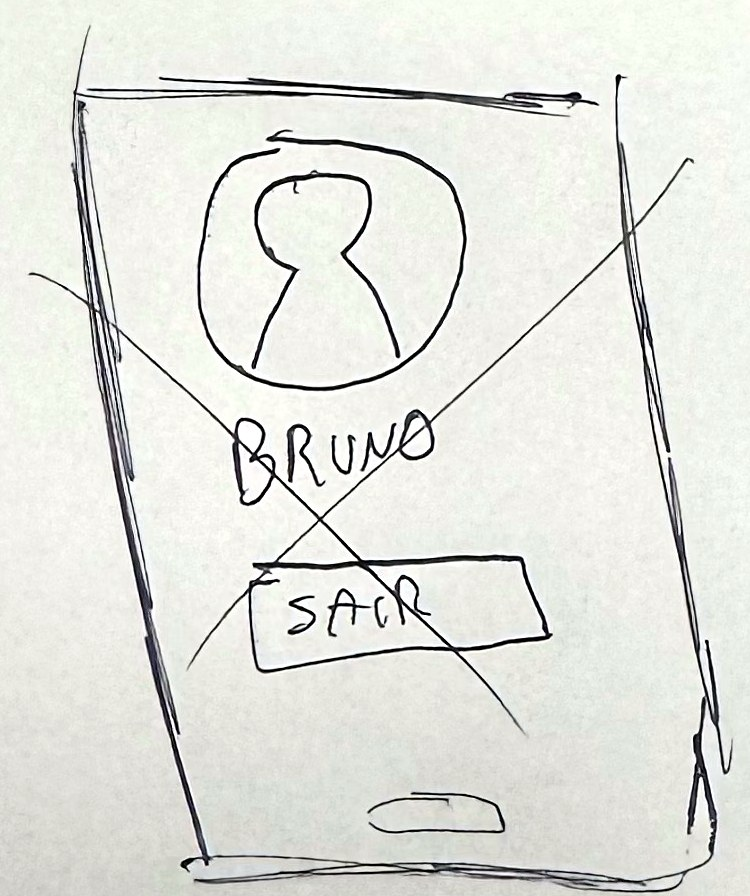 BRUNO
SAIR